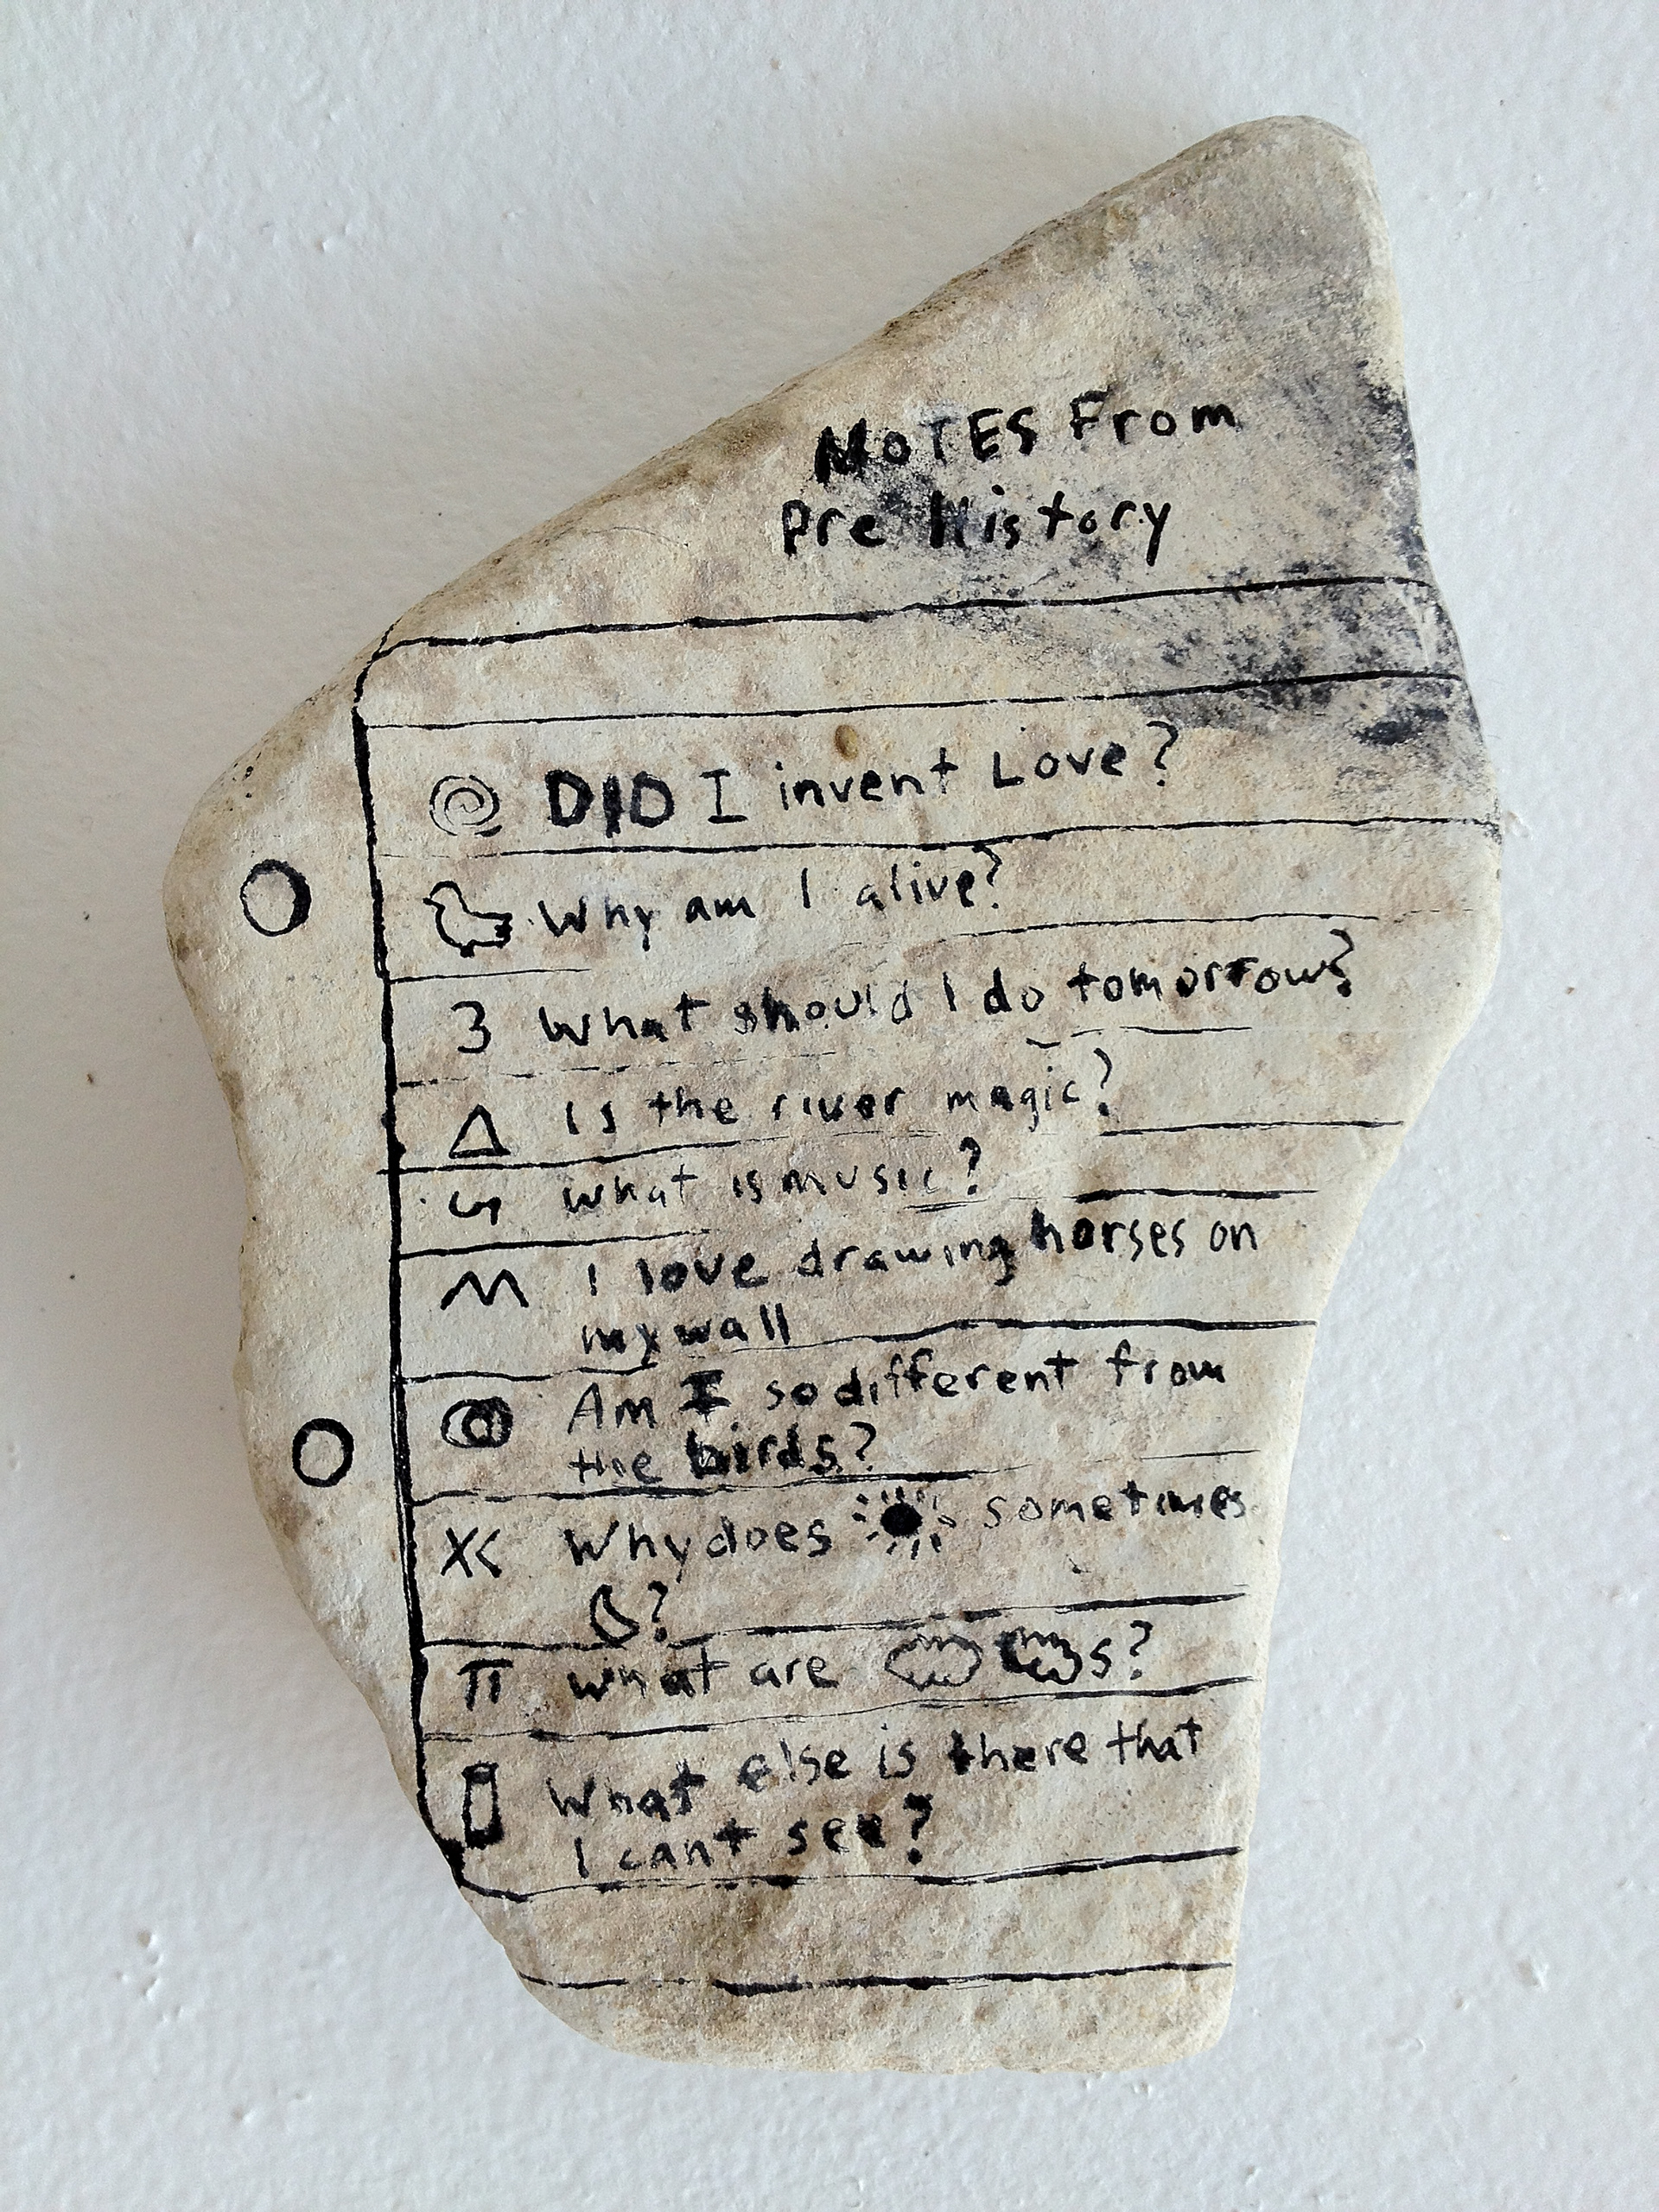 NOTES From
Pre History
DID I invent Love?
Why am I alive?
3 What should I do tomorrow?
Is the river magic?
what is music?
I love drawing horses on
my wall
Am I so different from
the birds?
Why does sometimes
?
π what are s?
What else is there that
I cant see?